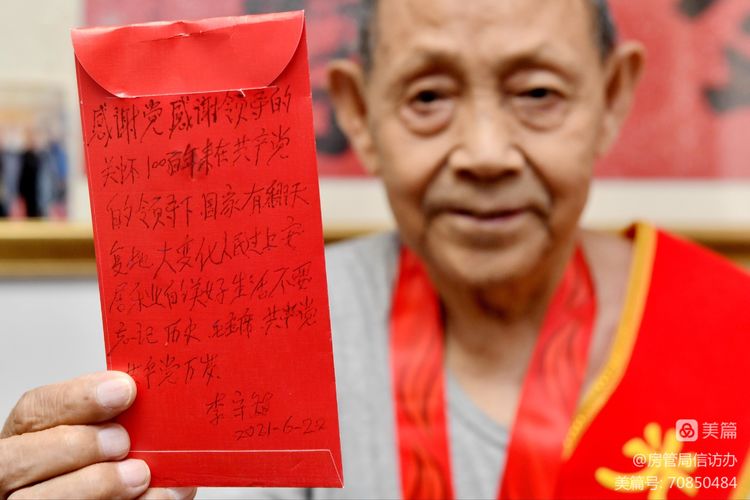 感谢党感谢领导的
关怀100百年来在共产党
的领导下国家有翻天
复地大变化人民过上安
居乐业的美好生活不要
忘记历史毛主席.共产党
共产党万岁
李守
2021-6-22
美篇
@房管局信访办
美篇号: 70850484